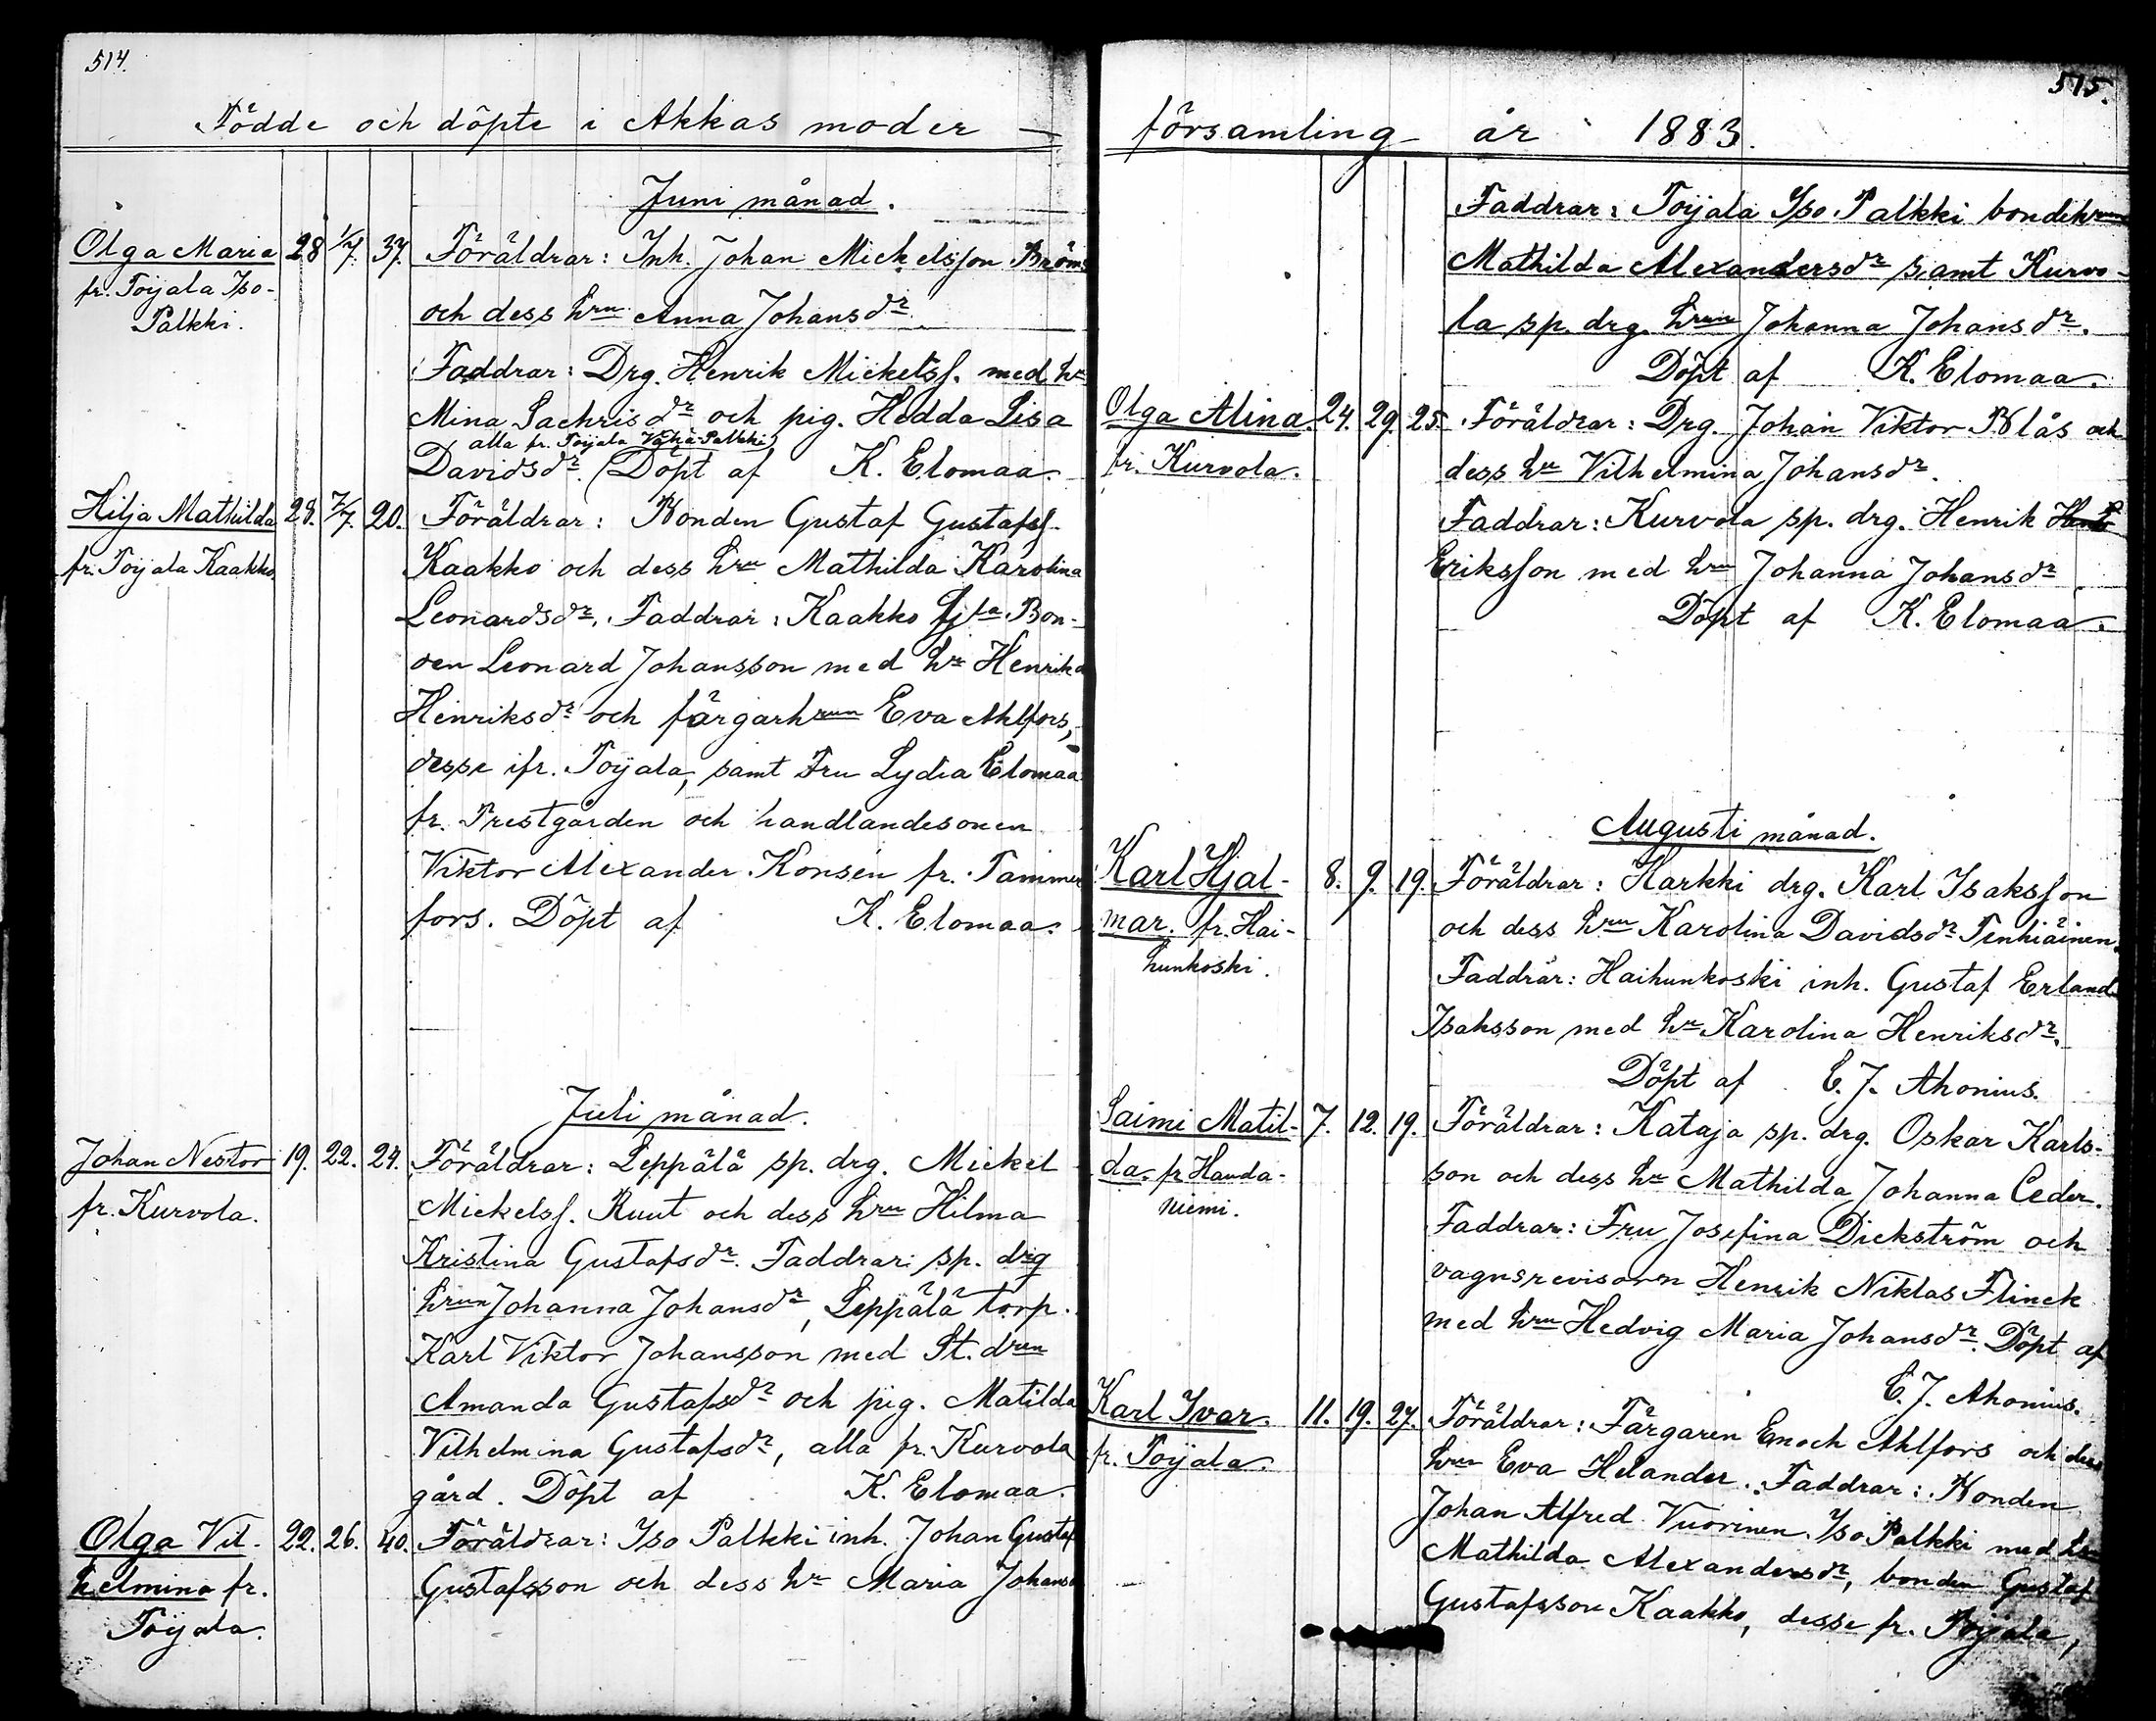 514.
Födde och döpte i Akkas moder —
Juni månad.
Olga Maria 28 1/7. 37. Föräldrar: Inh. Johan Mickelsson Bröms
fr. Toijala Iso-
Palkki.
och dess hru Anna Johansdr.
Faddrar: Drg. Henrik Mickelss. med hr
Mina Sachrisdr och pig. Hedda Lisa
alla fr. Toijala Vähä-Palkki
Davidsdr. (Döpt af K. Elomaa.
Hilja Mathilda 28. 7/7. 20. Föräldrar: Bonden Gustaf Gustafss.
fr. Toijala Kaakko.
Kaakko och dess hru Mathilda Karolina
Leonardsdr. Faddrar: Kaakko Bon-
den Leonard Johansson med hr Henrika
Henriksdr och färgarhrun Eva Ahlfors,
desse ifr. Toijala, samt Fru Lydia Elomaa
fr. Prestgården och handlandesonen
Viktor Alexander Konsén fr. Tammer
fors. Döpt af K. Elomaa.
Juli månad.
Johan Nestor 19. 22. 24. Föräldrar: Leppälä sp. drg. Mickel
fr. Kurvola.
Mickelss. Ruut och dess hru Hilma
Kristina Gustafsdr. Faddrar: sp. drg
hrun Johanna Johansdr, Leppälä torp.
Karl Viktor Johansson med St. drun
Amanda Gustafsdr och pig. Matilda
Vilhelmina Gustafsdr, alla fr. Kurvola
gård. Döpt af K. Elomaa.
Olga Vil- 22. 26. 40. Föräldrar: Iso Palkki inh. Johan Gustaf
helmina fr.
Toijala.
Gustafsson och dess hr Maria Johansd
515.
församling år 1883.
Faddrar: Toijala Iso Palkki bondehrun
Mathilda Alexandersdr samt Kurvo-
la sp. drg. hrun Johanna Johansdr.
Döpt af K. Elomaa.
Olga Alina 24. 29. 25. Föräldrar: Drg. Johan Viktor Blås och
fr. Kurvola.
dess hr Vilhelmina Johansdr.
Faddrar: Kurvola sp. drg. Henrik
Eriksson med hru Johanna Johansdr
Döpt af K. Elomaa.
Augusti månad.
Karl Hjal- 8. 9. 19. Föräldrar: Harkki drg. Karl Isaksson
mar. fr. Hai-
hunkoski.
och dess hru Karolina Davidsdr
Faddrar: Haihunkoski inh. Gustaf Erland
Isaksson med hr Karolina Henriksdr.
Döpt af E. J. Ahonius.
Saimi Matil- 7. 12. 19. Föräldrar: Kataja sp. drg. Oskar Karls-
da. fr Hauda-
niemi.
son och dess hr Mathilda Johanna Ceder.
Faddrar: Fru Josefina Dickström och
vagnsrevisoren Henrik Niklas Flinck
med hru Hedvig Maria Johansdr. Döpt af
E. J. Ahonius.
Karl Ivar. 11. 19. 27. Föräldrar: Färgaren Enoch Ahlfors och dess
fr. Toijala.
hru Eva Helander. Faddrar: Bonden
Johan Alfred Vuorinen Iso Palkki med hr
Mathilda Alexandersdr, bonden Gustaf
Gustafsson Kaakko, desse fr. Toijala,